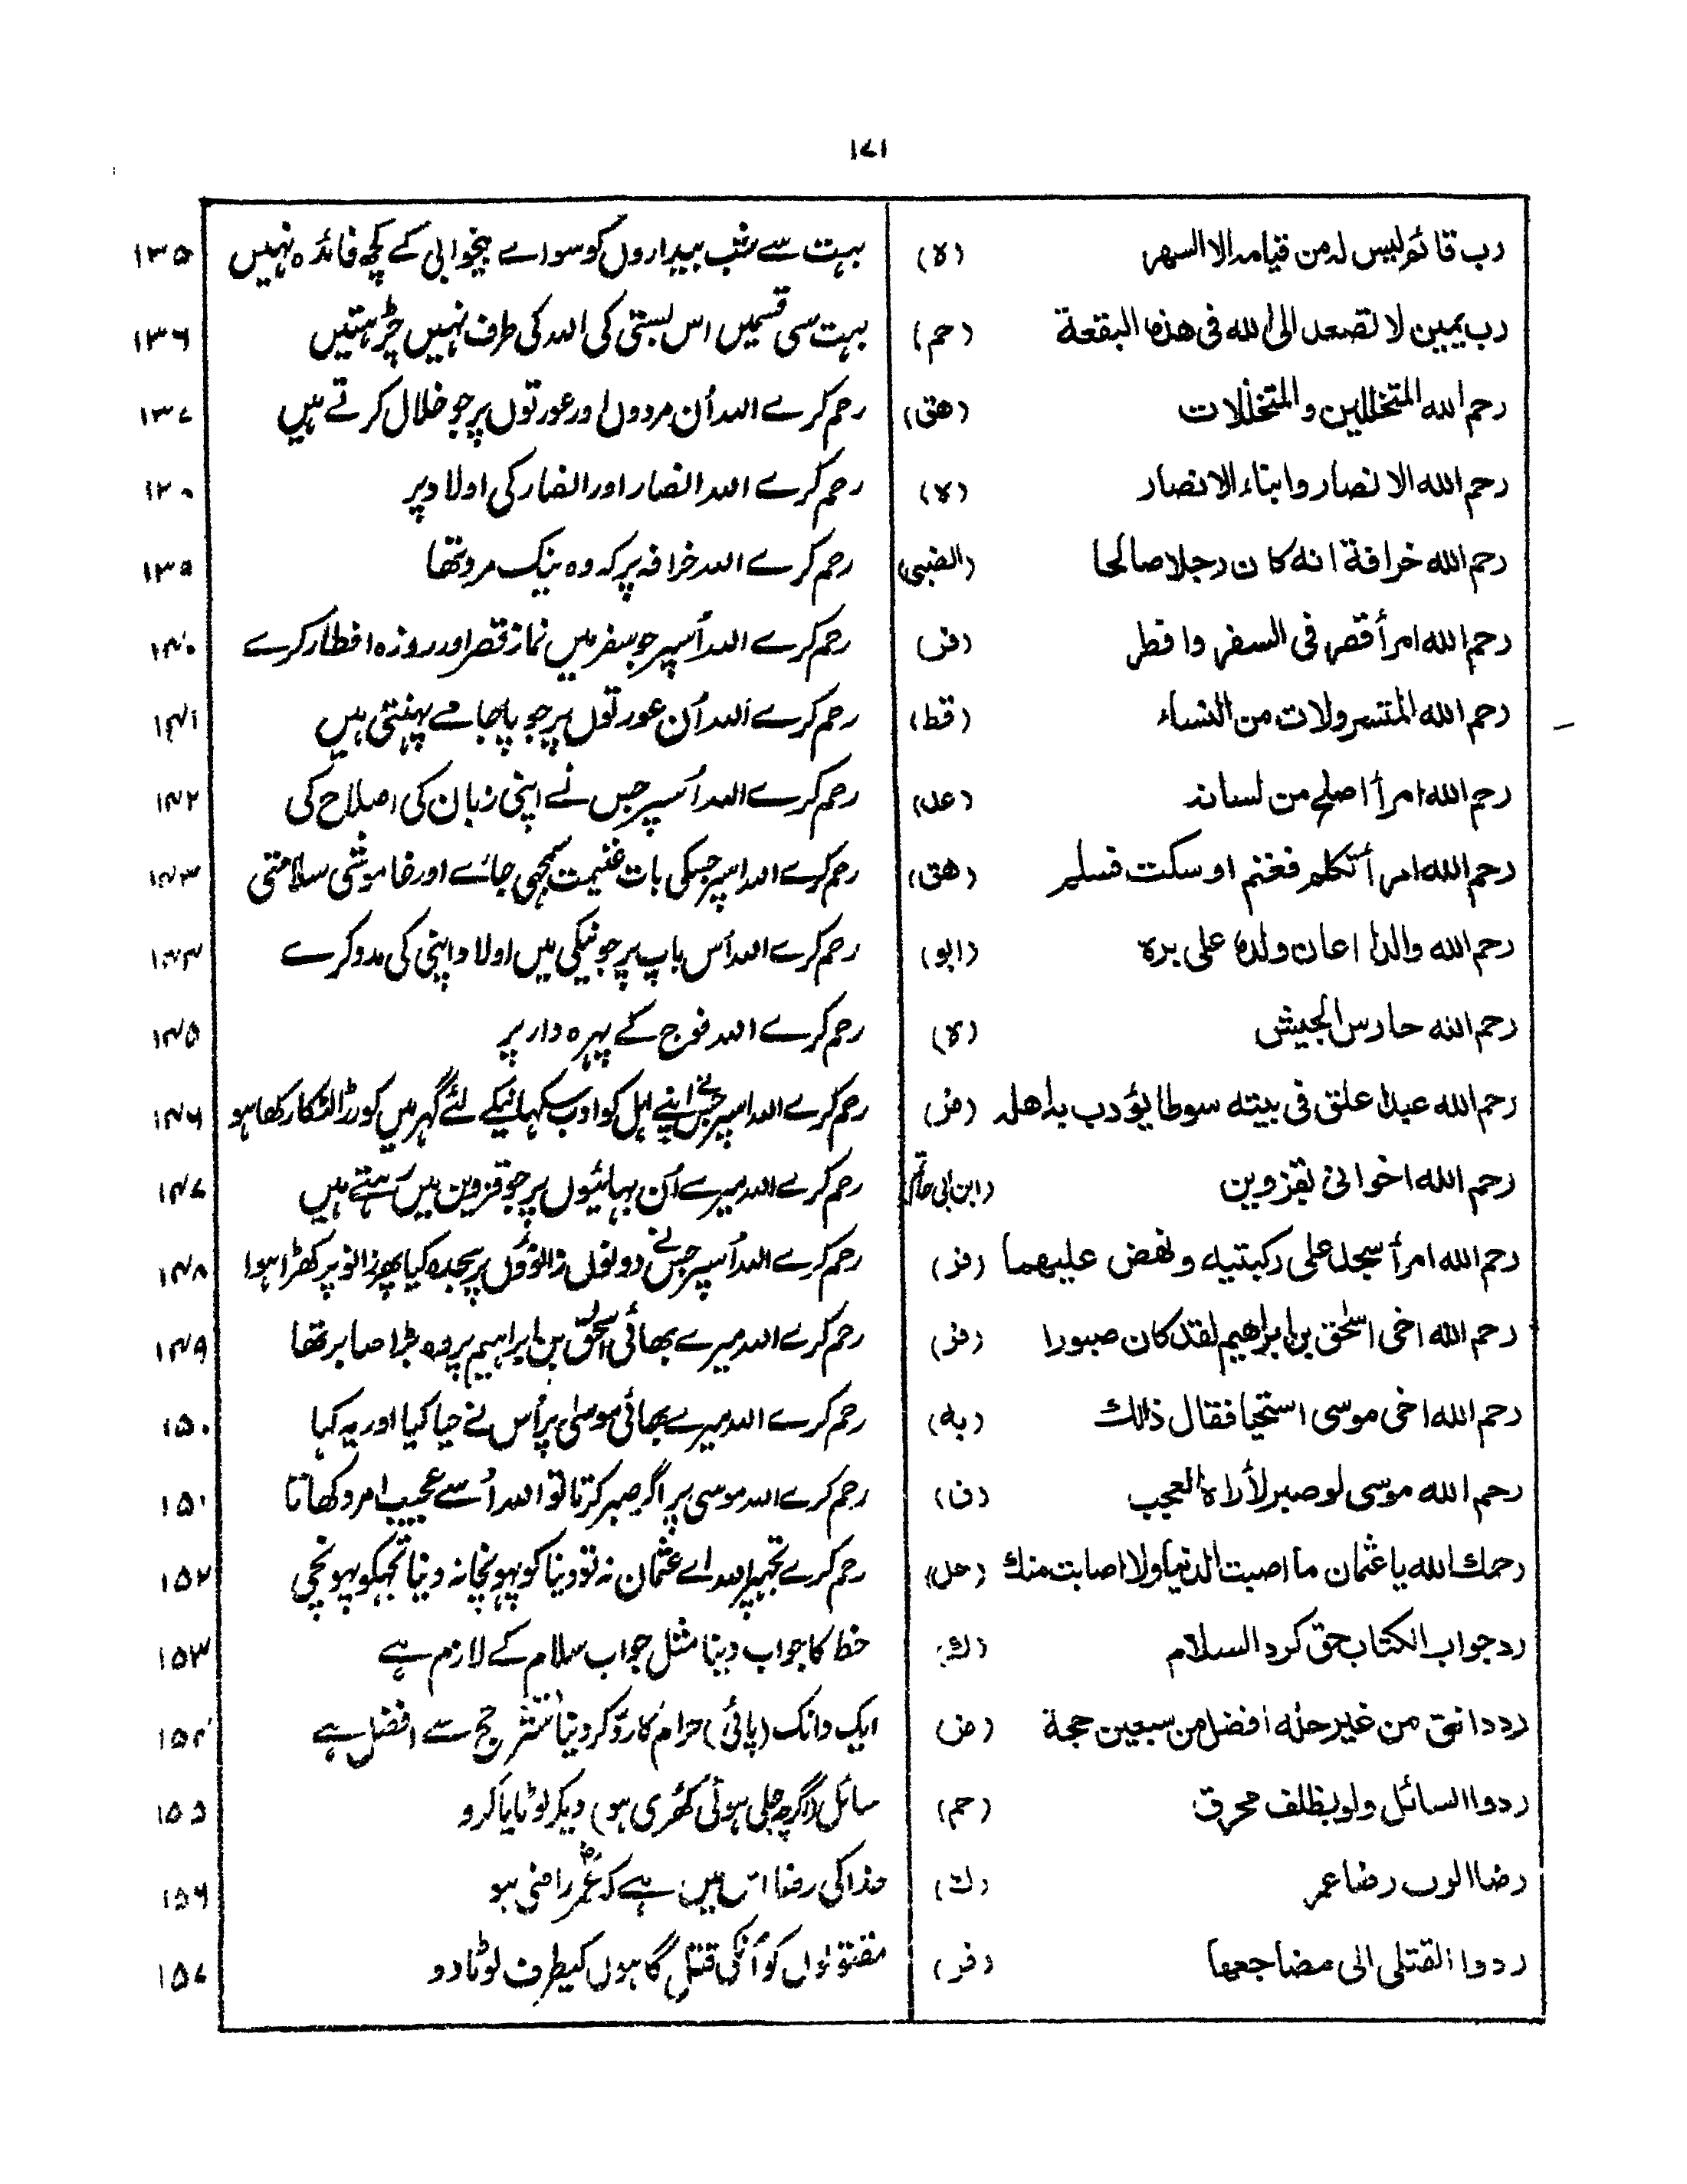 ۱۷۱
رب قائم ليس له من قيامه الا السهر (ه) بہت سے شب بیداروں کو سواے بیخوابی کے کچھ فائدہ نہیں ۱۳۵
رب يمين لا تصعد الى الله فى هذه البقعة (حم) بہت سی قسمیں اس بستی کی اللہ کی طرف نہیں چڑہتیں ۱۳۶
رحم الله المتخللين والمتخللات (هق) رحم کرے اللہ اُن مردوں اور عورتوں پر جو خلال کرتے ہیں ۱۳۷
رحم الله الانصار وابناء الانصار (ه) رحم کرے اللہ انصار اور انصار کی اولاد پر
رحم الله خرافة انه كان رجلا صالحا (الضبى) رحم کرے اللہ خرافہ پر کہ وہ نیک مرد تھا ۱۳۹
رحم الله امرأ قصر فى السفر وافطر (فر) رحم کرے اللہ اُسپر جو سفر میں نماز قصر اور روزہ افطار کرے ۱۴۰
رحم الله المتسرولات من النساء (قط) رحم کرے اللہ اُن عورتوں پر جو پاجامے پہنتی ہیں ۱۴۱
رحم الله امرأ اصلح من لسانه (عد) رحم کرے اللہ اُسپر جس نے اپنی زبان کی اصلاح کی ۱۴۲
رحم الله امرأ تكلم فغنم او سكت فسلم (هق) رحم کرے اللہ اسپر جسکی بات غنیمت سمجھی جائے اور خاموشی سلامتی ۱۴۳
رحم الله والدا اعان ولده على بره (ابو) رحم کرے اللہ اُس باپ پر جو نیکی میں اولاد اپنی کی مدد کرے ۱۴۴
رحم الله حارس الجيش (ه) رحم کرے اللہ فوج کے پہرہ دار پر ۱۴۵
رحم الله عبدا علق فى بيته سوطا يؤدب به اهله (فر) رحم کرے اللہ اسپر جس نے اپنے اہل کو ادب سکہانیکے لئے گہر میں کوڑا لٹکا رکھا ہو ۱۴۶
رحم الله اخوانى بقزوين (ابن ابى حاتم) رحم کرے اللہ میرے اُن بہائیوں پر جو قزوین میں رہتے ہیں ۱۴۷
رحم الله امرأ سجد على ركبتيه ونهض عليهما (فر) رحم کرے اللہ اُسپر جس نے دونوں زانوؤں پر سجدہ کیا پھر زانو پر کھڑا ہوا ۱۴۸
رحم الله اخى اسحٰق بن ابراهيم لقد كان صبورا (فر) رحم کرے اللہ میرے بھائی اسحٰق بن ابراہیم پر وہ بڑا صابر تھا ۱۴۹
رحم الله اخى موسى استحيا فقال ذالك (به) رحم کرے اللہ میرے بھائی موسیٰ پر اُس نے حیا کیا اور یہ کہا ۱۵۰
رحم الله موسى لو صبر لأراه العجب (ن) رحم کرے اللہ موسی پر اگر صبر کرتا تو اللہ اُسے عجیب امر دکھاتا ۱۵۱
رحمك الله يا عثمان ما اصبت الدنيا ولا اصابت منك (حل) رحم کرے تجہپر اللہ اے عثمان نہ تو دنیا کو پہونچا نہ دنیا تجہکو پہونچی ۱۵۲
رد جواب الكتاب حق كرد السلام (ك) خط کا جواب دینا مثل جواب سلام کے لازم ہے ۱۵۳
رد دانق من غير حله افضل من سبعين حجة (فر) ایک دانگ (پائی) حرام کا ردّ کر دینا ستّر حج سے افضل ہے ۱۵۴
ردوا السائل ولو بظلف محرق (حم) سائل (اگرچہ جلی ہوئی کھُری ہو) دیکر لوٹایا کرو ۱۵۵
رضا الرب رضا عمر (ك) خدا کی رضا اس میں ہے کہ عمرؓ راضی ہو ۱۵۶
ردوا القتلى الى مضاجعها (فر) مقتولوں کو اُنکی قتل گاہوں کیطرف لوٹا دو ۱۵۷